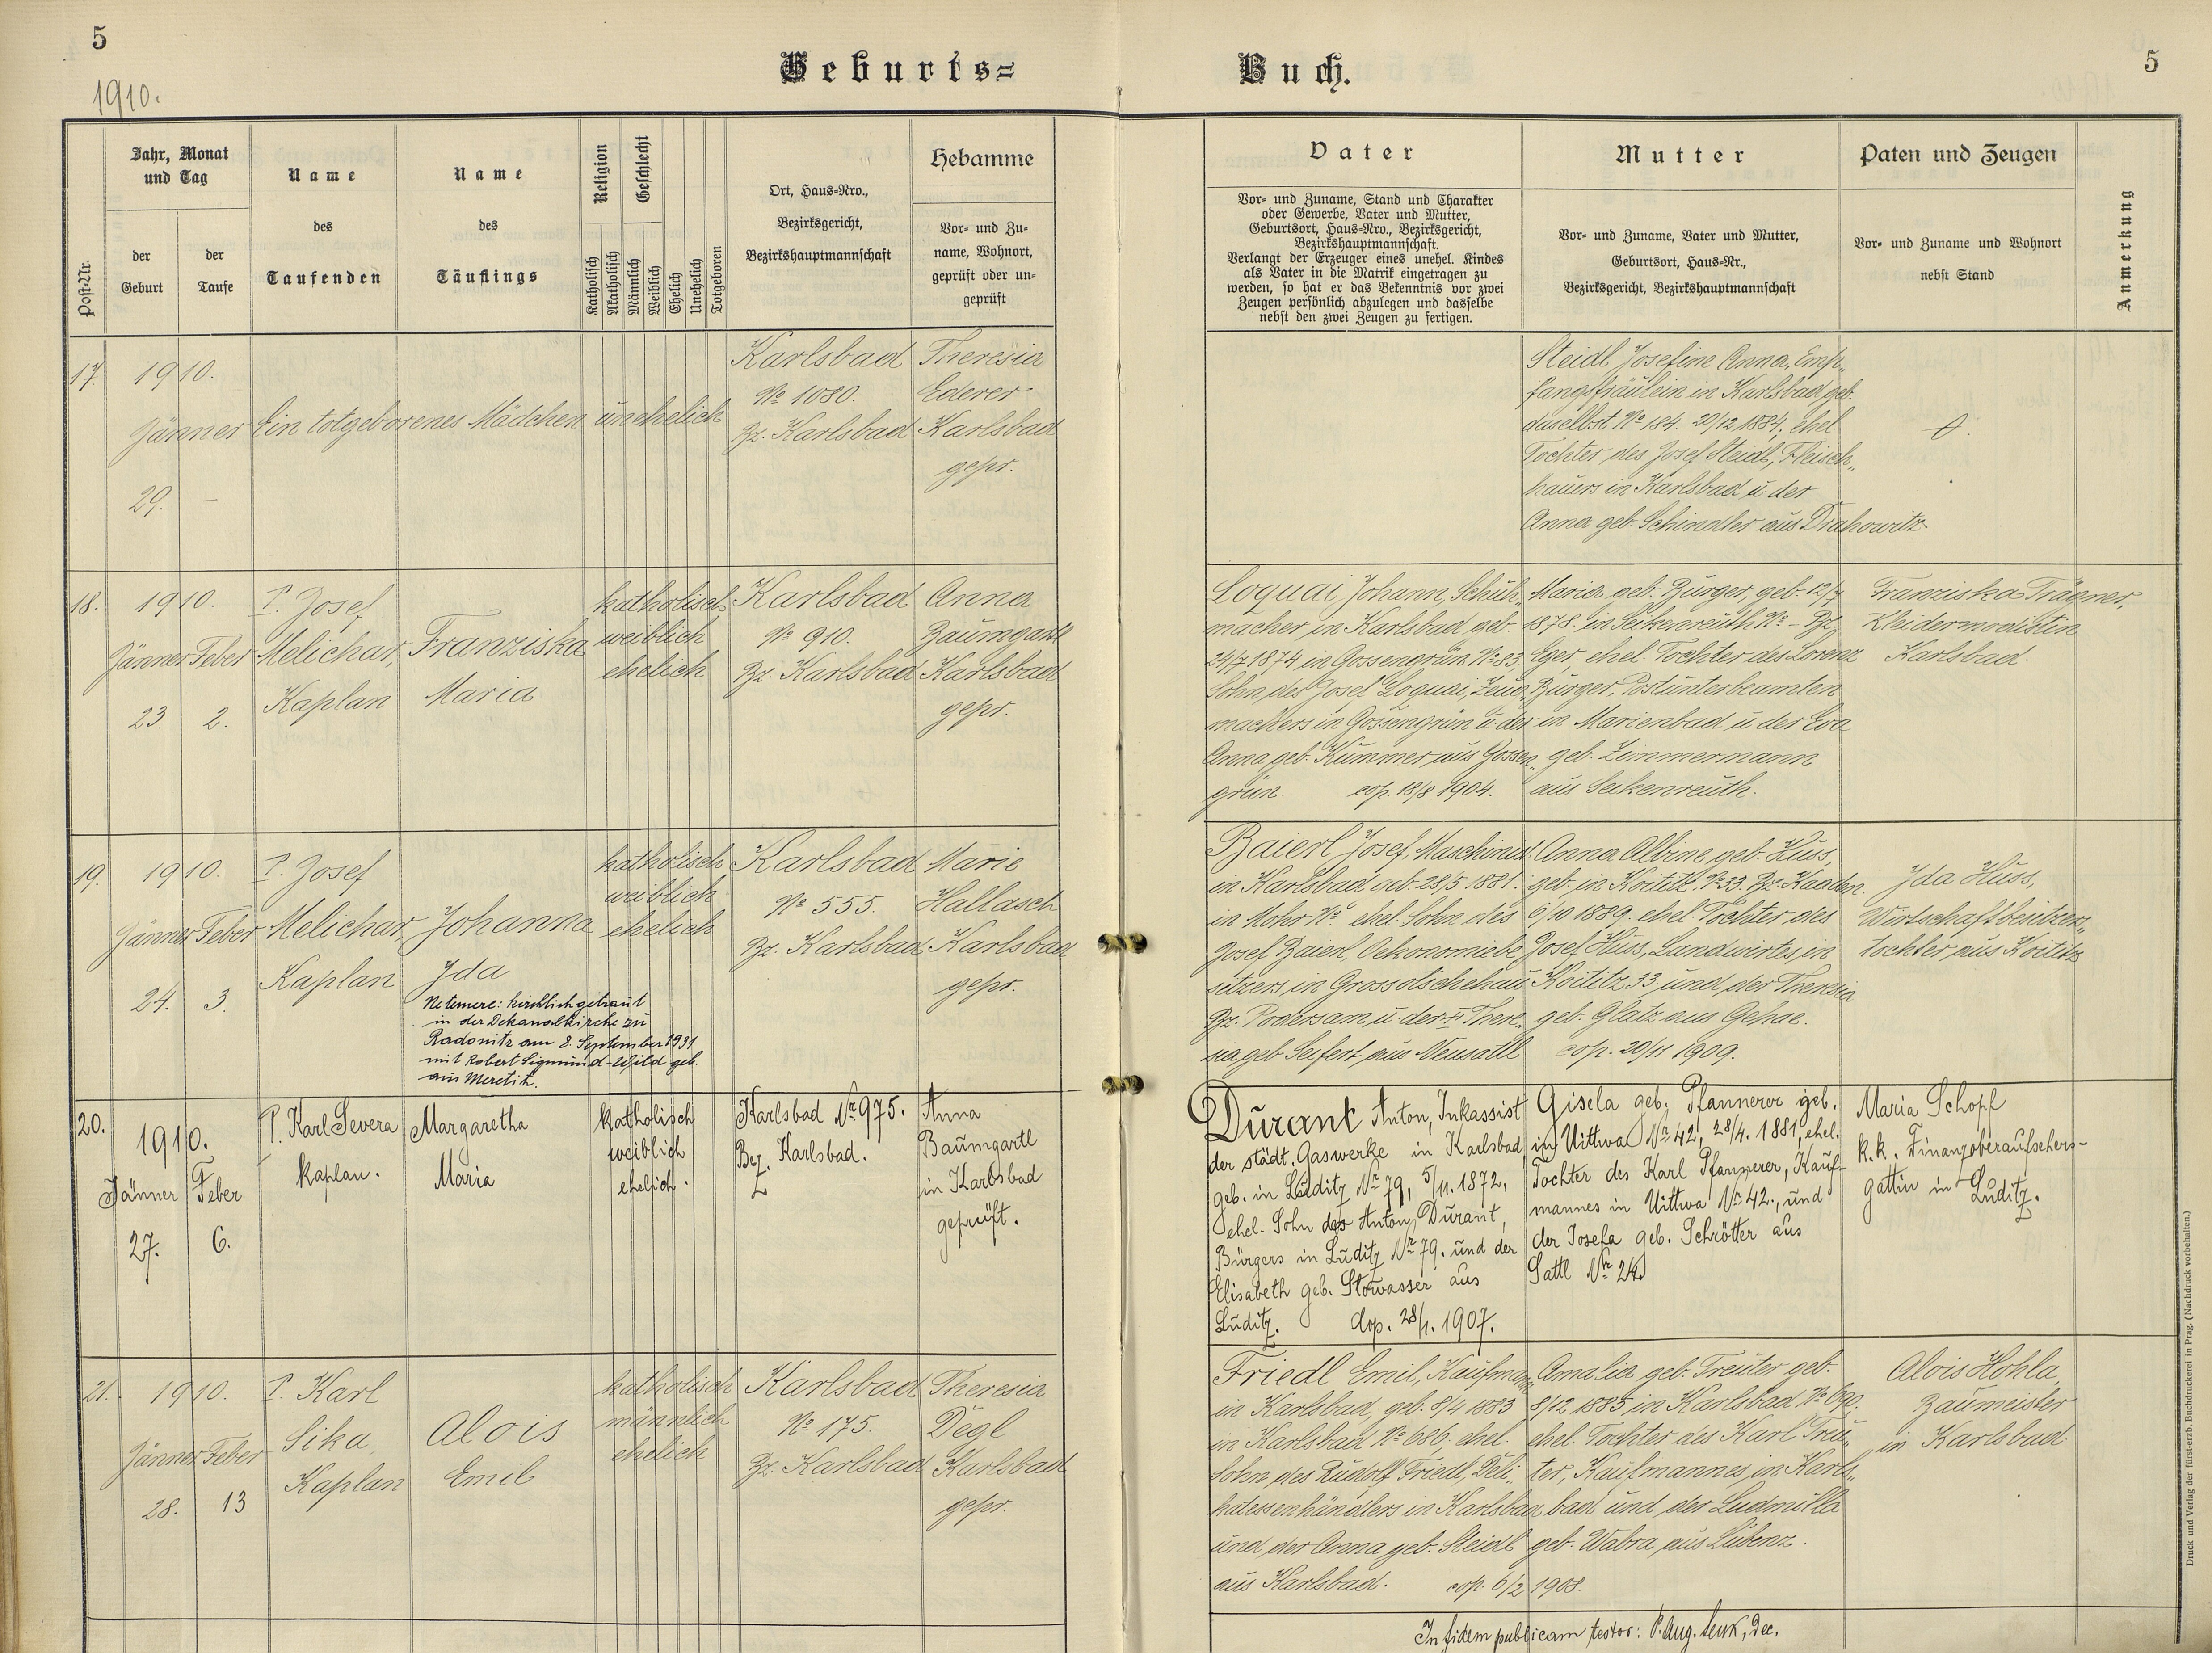 5
1910.
Geburts=
Buch.
5
Post-Nr.
Jahr, Monat
und Tag
der
Geburt
der
Taufe
Name
des
Taufenden
Name
des
Täuflings
Religion
Katholisch
Akatholisch
Geschlecht
Männlich
Weiblich
Ehelich
Unehelich
Totgeboren
Ort, Haus-Nro.,
Bezirksgericht,
Bezirkshauptmannschaft
Hebamme
Vor- und Zu-
name, Wohnort,
geprüft oder un-
geprüft
Vater
Vor- und Zuname, Stand und Charakter
oder Gewerbe, Vater und Mutter,
Geburtsort, Haus-Nro., Bezirksgericht,
Bezirkshauptmannschaft.
Verlangt der Erzeuger eines unehel. Kindes
als Vater in die Matrik eingetragen zu
werden, so hat er das Bekenntnis vor zwei
Zeugen persönlich abzulegen und dasselbe
nebst den zwei Zeugen zu fertigen.
Mutter
Vor- und Zuname, Vater und Mutter,
Geburtsort, Haus-Nr.,
Bezirksgericht, Bezirkshauptmannschaft
Paten und Zeugen
Vor- und Zuname und Wohnort
nebst Stand
Anmerkung
17.
1910.
Jänner
29. -
Ein totgeborenes Mädchen unehelich
Karlsbad
No 1080.
Bz. Karlsbad
Theresia
Ederer
Karlsbad
gepr.
Steidl Josefine Anna, Emp„
fangsfräulein in Karlsbad geb.
daselbst No 184. 20/12 1884, ehel.
Tochter des Josef Steidl, Fleisch„
hauers in Karlsbad u der
Anna geb. Schindler aus Drahowitz.
18.
1910.
Jänner Feber
23. 2.
P. Josef
Melichar,
Kaplan
Franziska
Maria
katholisch
weiblich
ehelich
Karlsbad
No 910.
Bz. Karlsbad
Anna
Baumgartl
Karlsbad
gepr.
Loquai Johann, Schuh„
macher in Karlsbad geb.
24/7 1874 in Gossengrün No 83,
Sohn des Josef Loquai, Zeug„
machers in Gossengrün u der
Anna geb. Kummer aus Gossen„
grün. cop. 18/8 1904.
Maria geb. Bürger, geb. 12/7
1878. in Seikenreuth No - Bz.
Eger, ehel. Tochter des Lorenz
Bürger, Postunterbeamten
in Marienbad u der Eva
geb. Zimmermann
aus Seikenreuth.
Franziska Trägner,
Kleidermodistin
Karlsbad.
19.
1910.
Jänner Feber
24. 3.
P. Josef
Melichar,
Kaplan
Johanna
Jda
Ne temere: kirchlich getraut
in der Dekanalkirche zu
Radonitz am 8. September 1931
mit Robert Sigmund Wild geb.
aus Meretitz.
katholisch
weiblich
ehelich
Karlsbad
No 555.
Bz. Karlsbad
Marie
Hallasch
Karlsbad
gepr.
Baierl Josef, Maschinist
in Karlsbad geb. 28/5 1881.
in Mohr No ehel. Sohn des
Josef Baierl, Oekonomiebe
sitzers in Grossotschehau
Bz. Podersam, u der There„
sia geb. Seifert aus Neusattl
Anna Albine, geb. Huss,
geb. in Koititz. No 33. Bz. Kaaden.
6/10 1889. ehel. Tochter des
Josef Huss, Landwirtes, in
Koititz 33, und der Theresia
geb. Glatz aus Gehae.
cop. 20/11 1909.
Jda Huss,
Wirtschaftsbesitzers„
tochter aus Koititz
20.
1910.
Jänner Feber
27. 6.
P. Karl Severa
kaplan.
Margaretha
Maria
katholisch
weiblich
ehelich.
Karlsbad No 975.
Bez. Karlsbad.
Anna
Baumgartl
in Karlsbad
geprüft.
Durant Anton, Inkassist
der städt. Gaswerke in Karlsbad,
geb. in Luditz No 79, 5/11. 1872,
ehel. Sohn des Anton Durant,
Bürgers in Luditz No 79. und der
Elisabeth geb. Stowasser aus
Luditz. cop. 28/1. 1907.
Gisela geb. Pfannerer geb.
in Uittwa No 42, 28/4. 1881, ehel.
Tochter des Karl Pfannerer, Kauf-
mannes in Uittwa No 42., und
der Josefa geb. Schrötter aus
Sattl No 24.
Maria Schopf
k.k. Finanzoberaufsehers-
gattin in Luditz.
21.
1910.
Jänner Feber
28. 13
P. Karl
Sika,
Kaplan
Alois
Emil
katholisch
männlich
ehelich
Karlsbad
No 175.
Bz. Karlsbad
Theresia
Degl
Karlsbad
gepr.
Friedl Emil, Kaufmann
in Karlsbad, geb. 8/4 1883
in Karlsbad No 686, ehel.
Sohn des Rudolf Friedl, Deli„
katessenhändlers in Karlsbad
und der Anna geb. Steidl
aus Karlsbad. cop. 6/2 1908.
Amalia geb. Treuter geb.
8/12 1885 in Karlsbad No 690.
ehel. Tochter des Karl Treu„
ter, Kaufmannes in Karls„
bad und der Ludmilla
geb. Wabra, aus Lubenz.
Alois Hohla,
Baumeister
in Karlsbad
In fidem publicam testor: P. Aug. Senk, Dec.
Druck und Verlag der fürst-erzb. Buchdruckerei in Prag. (Nachdruck vorbehalten.)